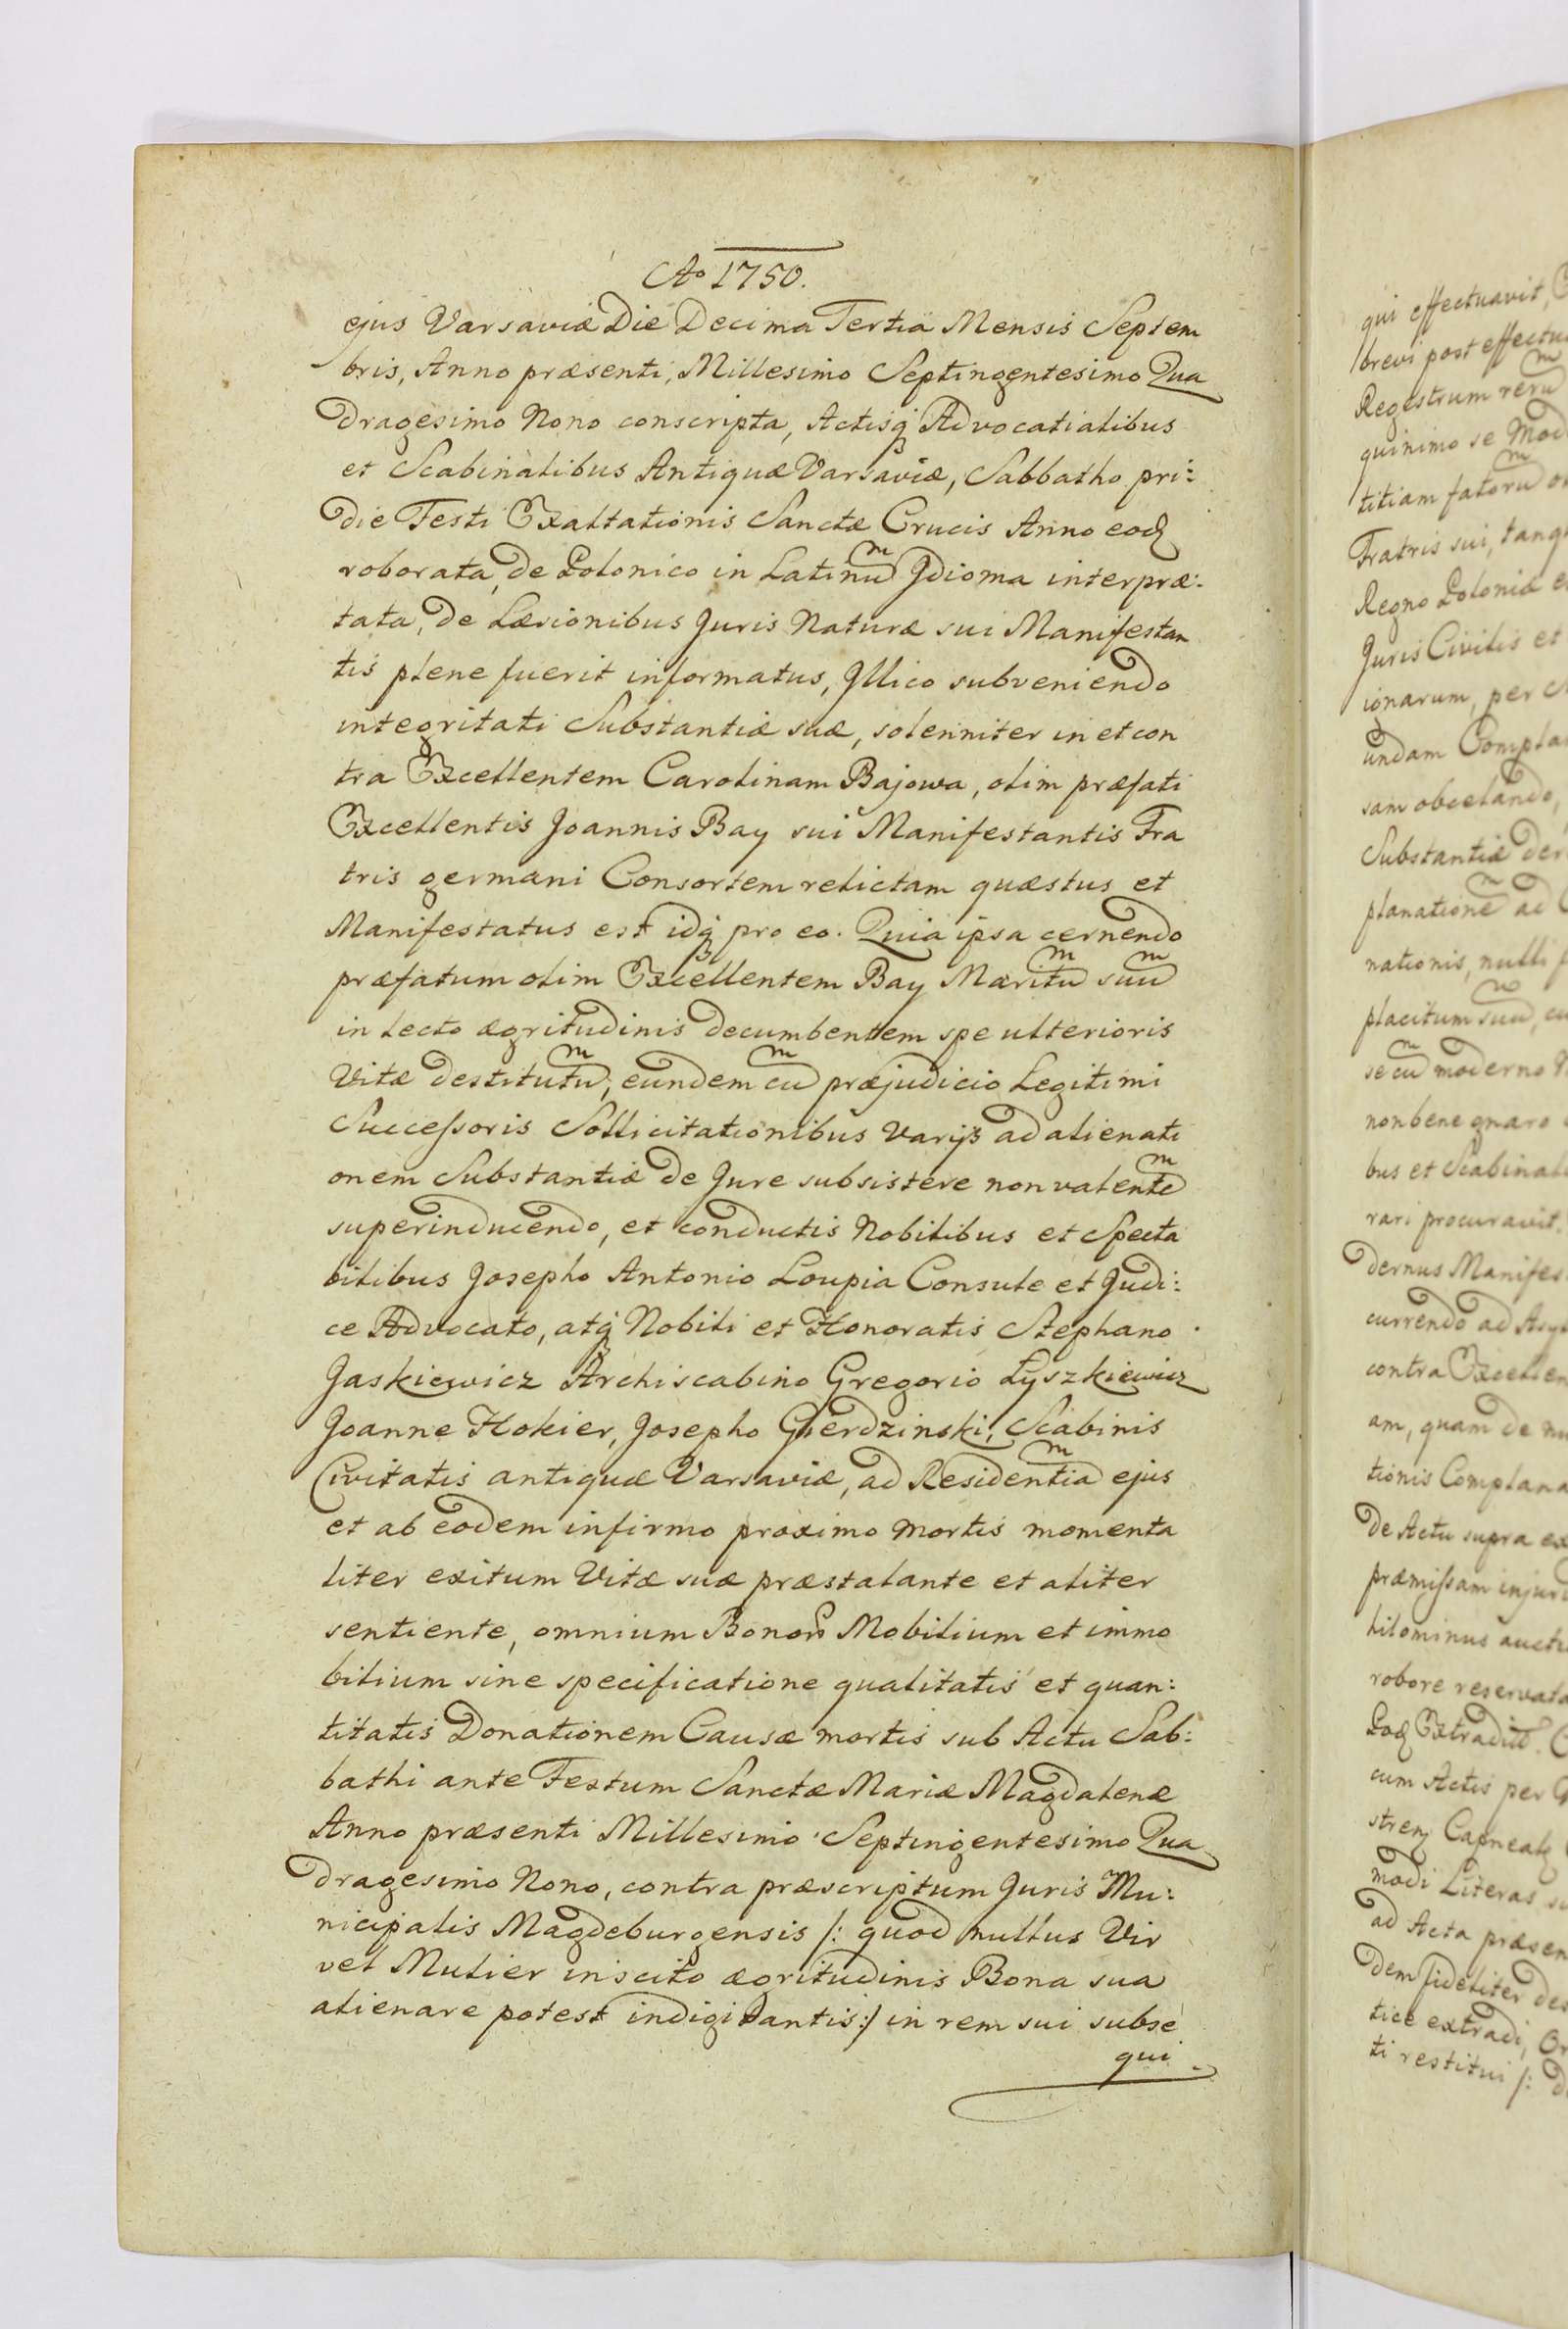 Ao 1750.
ejus Varsaviæ Die Decima Tertia Mensis Septem
bris, Anno præsenti, Millesimo Septingentesimo Qua
dragesimo Nono conscripta, Actisq Advocatialibus
et Scabinalibus Antiquæ Varsaviæ, Sabbatho pri:
die Festi Exaltationis Sanctæ Crucis Anno eod
roborata, de Polonico in Latinum Jdioma interpræ:
tata, de Læsionibus Juris Naturæ sui Manifestan
tis plene fuerit informatus, Jllico subveniendo
integritati Substantiæ suæ, solenniter in et con
tra Excellentem Carolinam Bajowa, olim præfati
Excellentis Joannis Bay sui Manifestantis Fra
tris germani Consortem relictam quæstus et
Manifestatus est idq pro eo. Quia ipsa cernendo
præfatum olim Excellentem Bay Maritum suum
in lecto ægritudinis decumbentem spe ulterioris
Vitæ destitutum, eundem cum præjudicio Legitimi
Successoris Sollicitationibus Varijs ad alienati
onem Substantiæ de Jure subsistere non valentem
superinducendo, et conductis Nobilibus et Specta
bilibus Josepho Antonio Loupia Consule et Judi:
ce Advocato, atq Nobili et Honoratis Stephano
Jaskiewicz Archiscabino Gregorio Łyszkiewicz
Joanne Hokier, Josepho Gierdzinski, Scabinis
Civitatis antiquæ Varsaviæ, ad Residentiam ejus
et ab eodem infirmo proximo mortis momenta
liter exitum Vitæ suæ præstalante et aliter
sentiente, omnium Bonor Mobilium et immo
bilium sine specificatione qualitatis et quan:
titatis Donationem Causæ mortis sub Actu Sab:
bathi ante Festum Sanctæ Mariæ Magdalenæ
Anno præsenti Millesimo Septingentesimo Qua
dragesimo Nono, contra præscriptum Juris Mu:
nicipalis Magdeburgensis /: quod nullus Vir
vel Mulier in scito ægritudinis Bona sua
alienare potest indigitantis :/ in rem sui subse
qui
qui effectuavit,
brevi post
Regestrum rerum
quinimo se
titiam fatorum
Fratris sui,
Regno Poloniæ
Juris Civilis et
ionarum, per
undam
sam obcelando,
Substantiæ
planationem ad
nationis, nulli
placitum suum,
se cum moderno
non bene gnaro
bus et
rari procuravit.
dernus
currendo ad
contra
am, quam de
tionis
De Actu supra
præmissam
hilominus
robore
cum Actis per
modi Literas
ad Acta
dem fideliter
tice extradi,
ti restitui /: